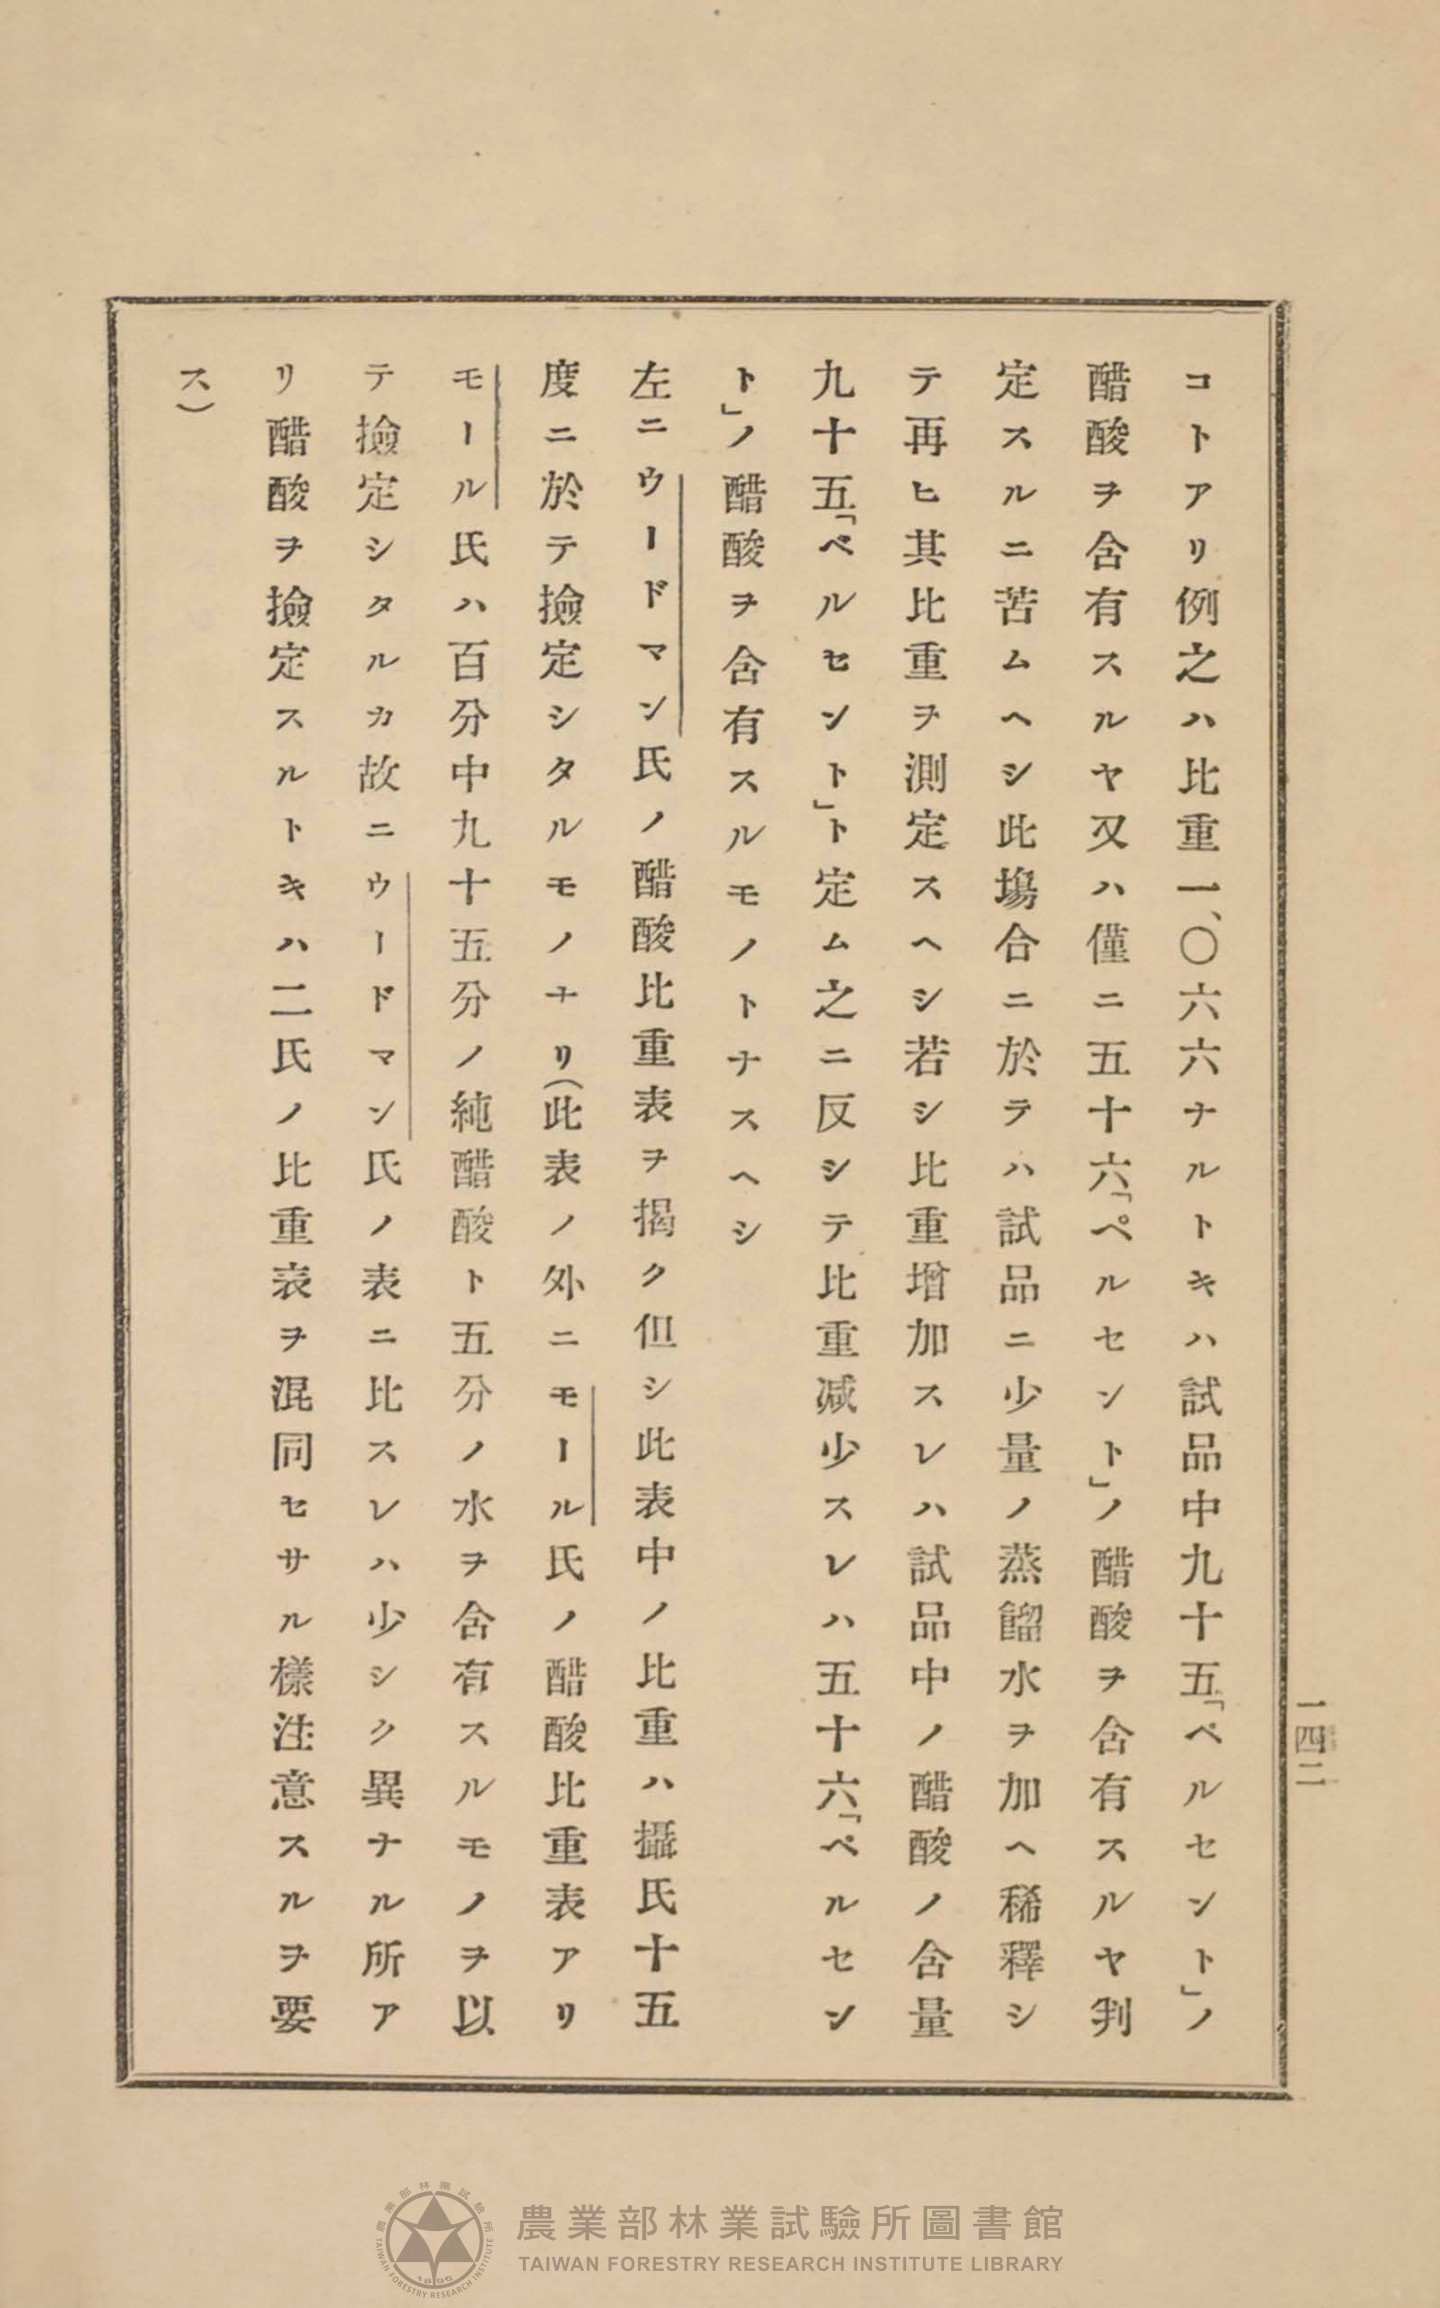 コトアリ例之ハ比重一、〇六六ナルトキハ試品中九十五「ペルセント」ノ
醋酸ヲ含有スルヤ又ハ僅ニ五十六「ペルセント」ノ醋酸ヲ含有スルヤ判
定スルニ苦ムヘシ此塲合ニ於テハ試品ニ少量ノ蒸餾水ヲ加ヘ稀釋シ
テ再ヒ其比重ヲ測定スヘシ若シ比重增加スレハ試品中ノ醋酸ノ含量
九十五「ペルセント」ト定ム之ニ反シテ比重减少スレハ五十六「ペルセン
ト」ノ醋酸ヲ含有スルモノトナスヘシ
左ニウードマン氏ノ醋酸比重表ヲ揭ク但シ此表中ノ比重ハ攝氏十五
度ニ於テ撿定シタルモノナリ(此表ノ外ニモール氏ノ醋酸比重表アリ
モール氏ハ百分中九十五分ノ純醋酸ト五分ノ水ヲ含有スルモノヲ以
テ撿定シタルカ故ニウードマン氏ノ表ニ比スレハ少シク異ナル所ア
リ醋酸ヲ撿定スルトキハ二氏ノ比重表ヲ混同セサル樣注意スルヲ要
ス)
一四二
農業部林業試驗所圖書館
TAIWAN FORESTRY RESEARCH INSTITUTE LIBRARY
農業部林業試驗所
TAIWAN FORESTRY RESEARCH INSTITUTE
1896